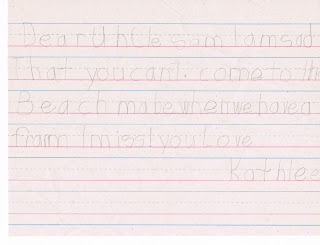 Dear Uncle Sam I am sad
That you cant. come to th
Beach mabe when we have a
I miss! you Love
Kathlee